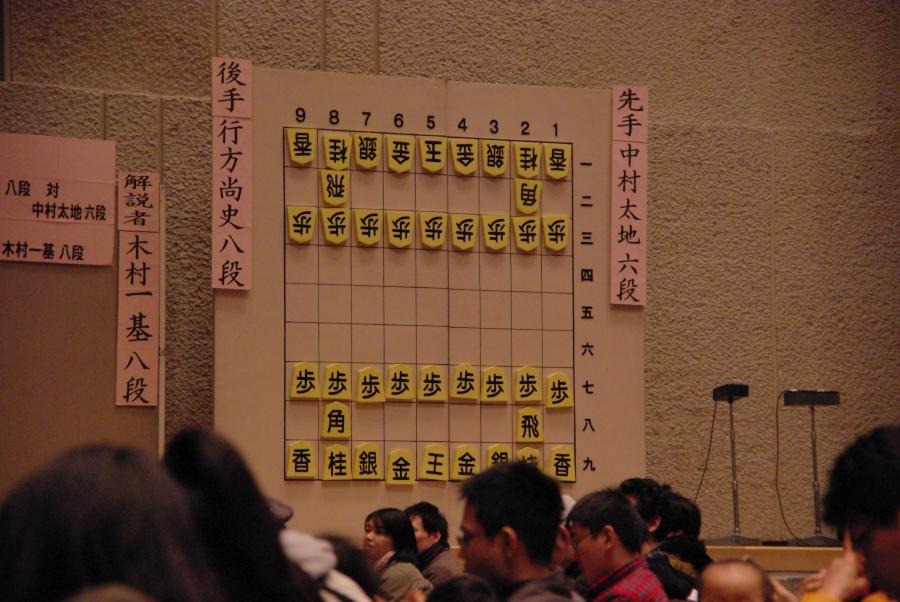 後手 行方尚史八段
先手 中村太地六段
八段 対
中村太地 六段
木村一基 八段
解説者 木村一基八段
9 8 7 6 5 4 3 2 1
香 桂 銀 金 王 金 銀 桂 香 一
飛 角 二
歩 歩 歩 歩 歩 歩 歩 歩 歩 三
四
五
六
歩 歩 歩 歩 歩 歩 歩 歩 歩 七
角 飛 八
香 桂 銀 金 王 金 銀 桂 香 九